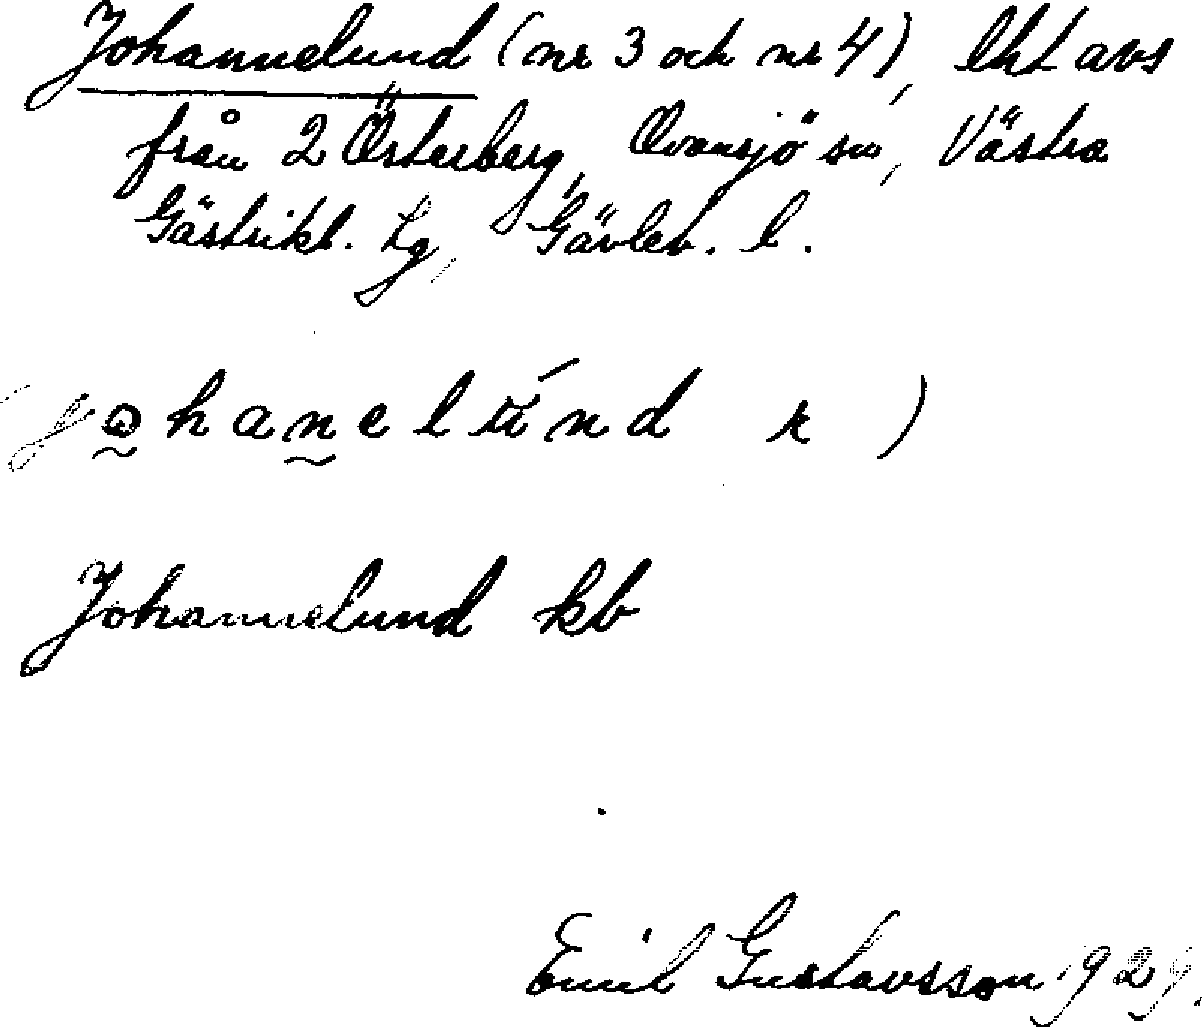 Johannelund (nr 3 och nr 4), lht avs
från 2 Österberg, Ovansjö sn, Västra
Gästrikl. tg, Gävleb. l.
johanelūńd r )
Johannelund kb
Emil Gustavsson 1929.